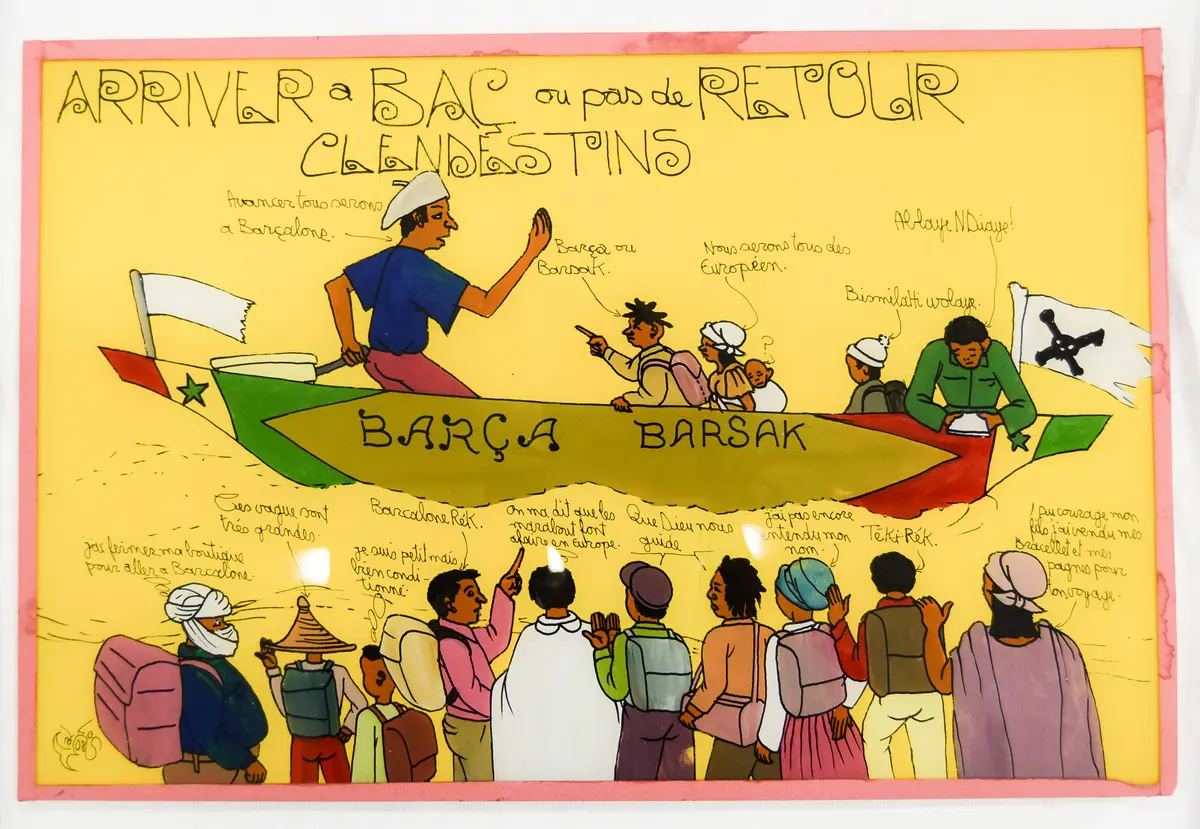 ARRIVER a BAÇ ou pas de RETOUR
CLENDESTINS
Avancer tous serons
a Barçalone.
Barça ou
Barsak.
Nous serons tous des
Européen.
Allaye NDiaye!
Bismilahi wolaye.
?
BARÇA BARSAK
jai fermer ma boutique
pour aller a Barcalone.
Ces vague sont
très grandes.
je suis petit mais
bien condi-
tionné.
Barcalone Rék.
on ma dit que les
marabout font
afaire en Europe.
Que Dieu nous
guide
j'ai pas encore
entendu mon
nom.
Téki Rék.
Du courage mon
fils j'ai vendu mes
Bracellet et mes
pagnes pour
ton voyage.